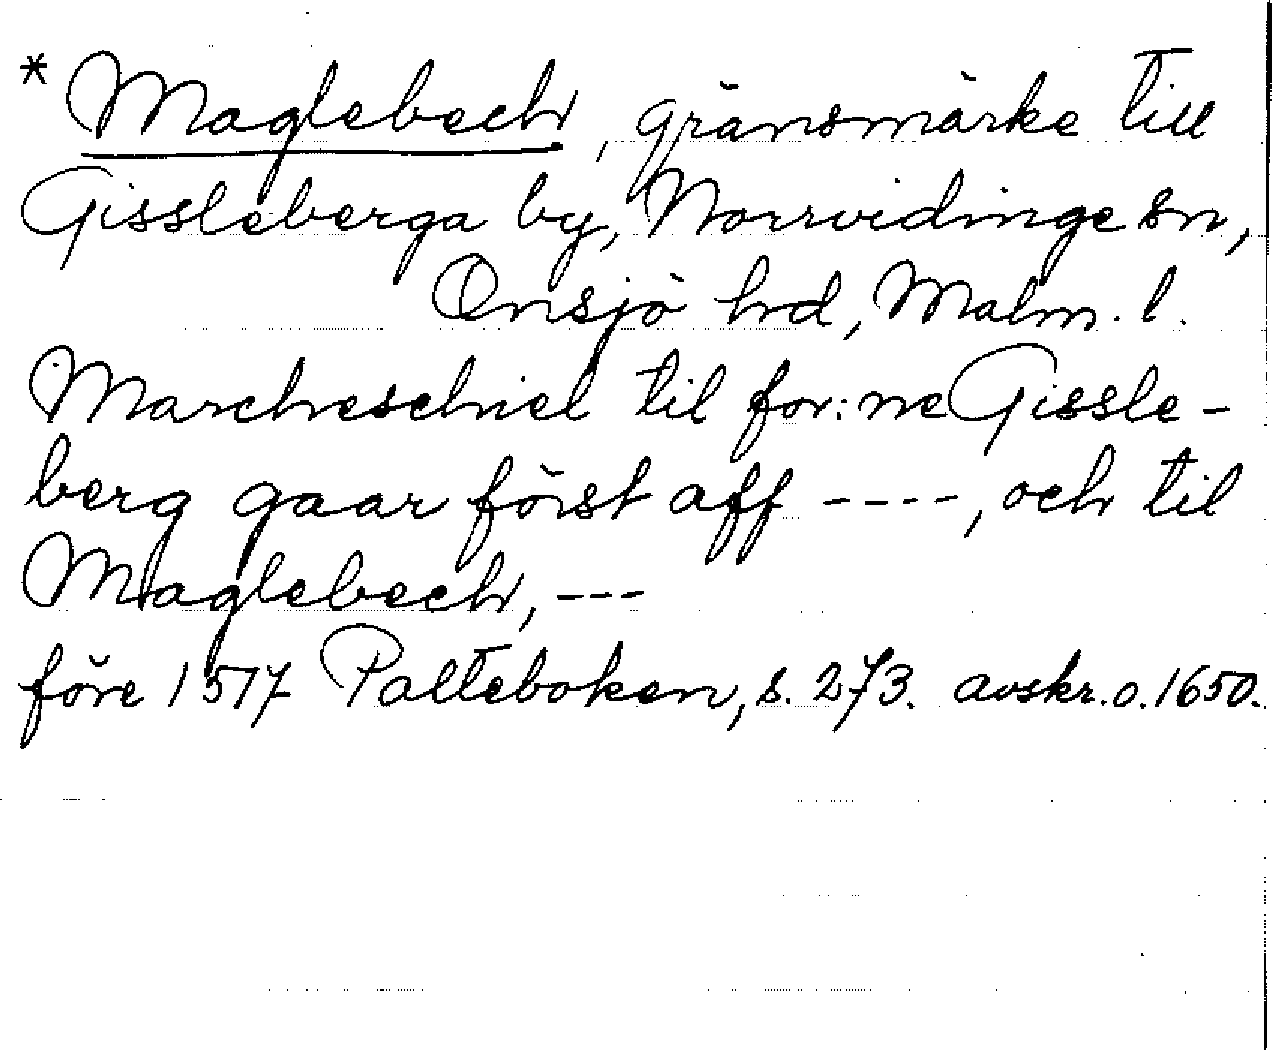 * Maglebech, gränsmärke till
Gissleberga by, Norrvidinge sn,
Onsjö hrd, Malm. l.
Marcheschiel til for: ne Gissle-
berg gaar först aff ----, och til
Maglebech, ---
före 1517 Palteboken, s. 273. avskr. o. 1650.